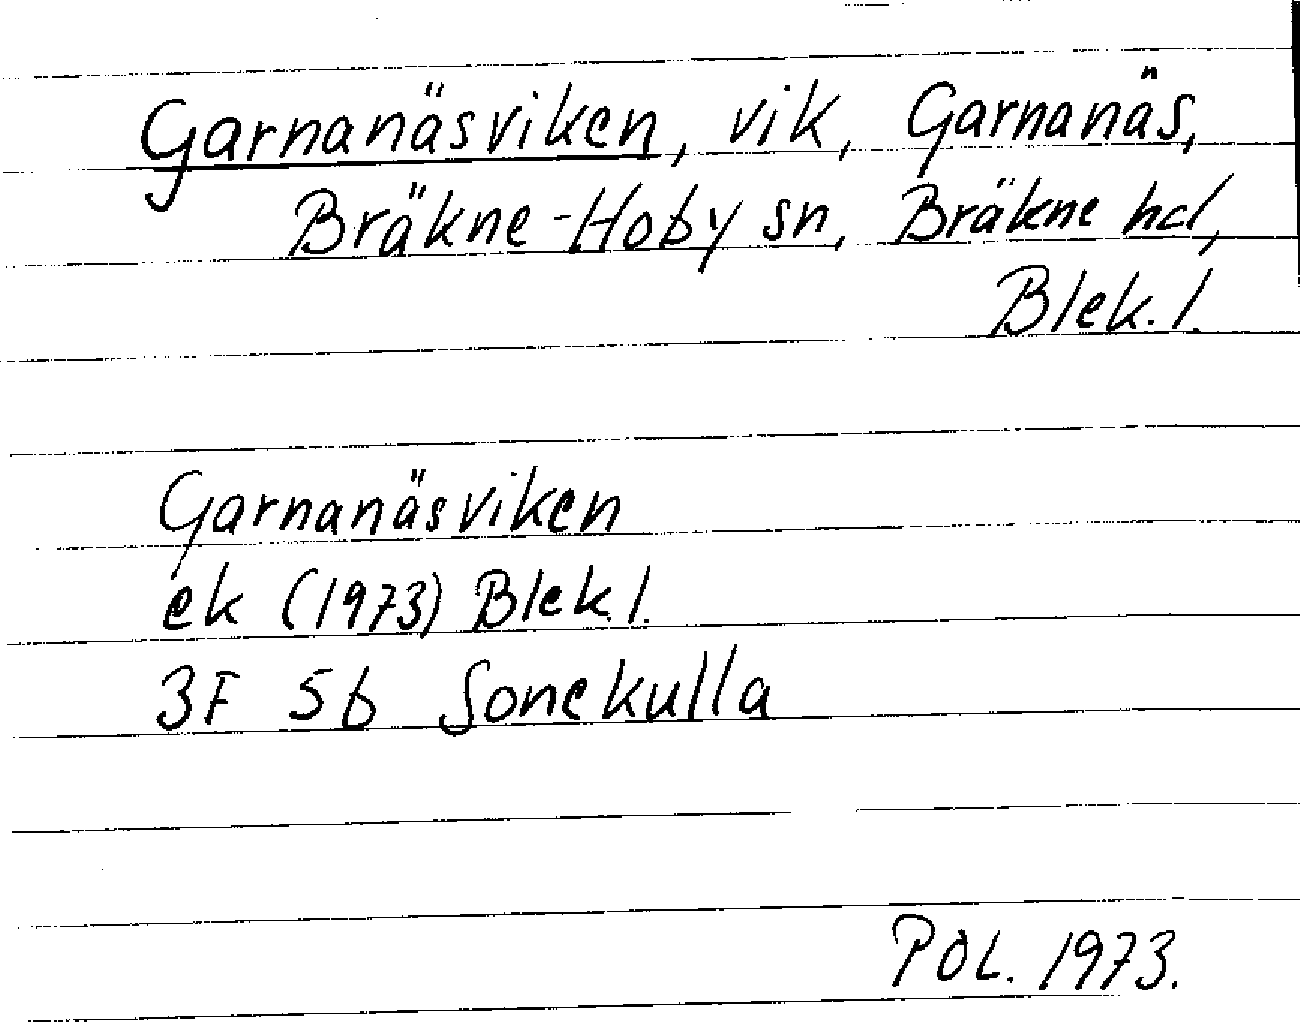 Garnanäsviken, vik, Garnanäs,
Bräkne-Hoby sn, Bräkne hd,
Blek. l.
Garnanäsviken
ek (1973) Blek. l.
3F 5b Sonekulla
POL. 1973.